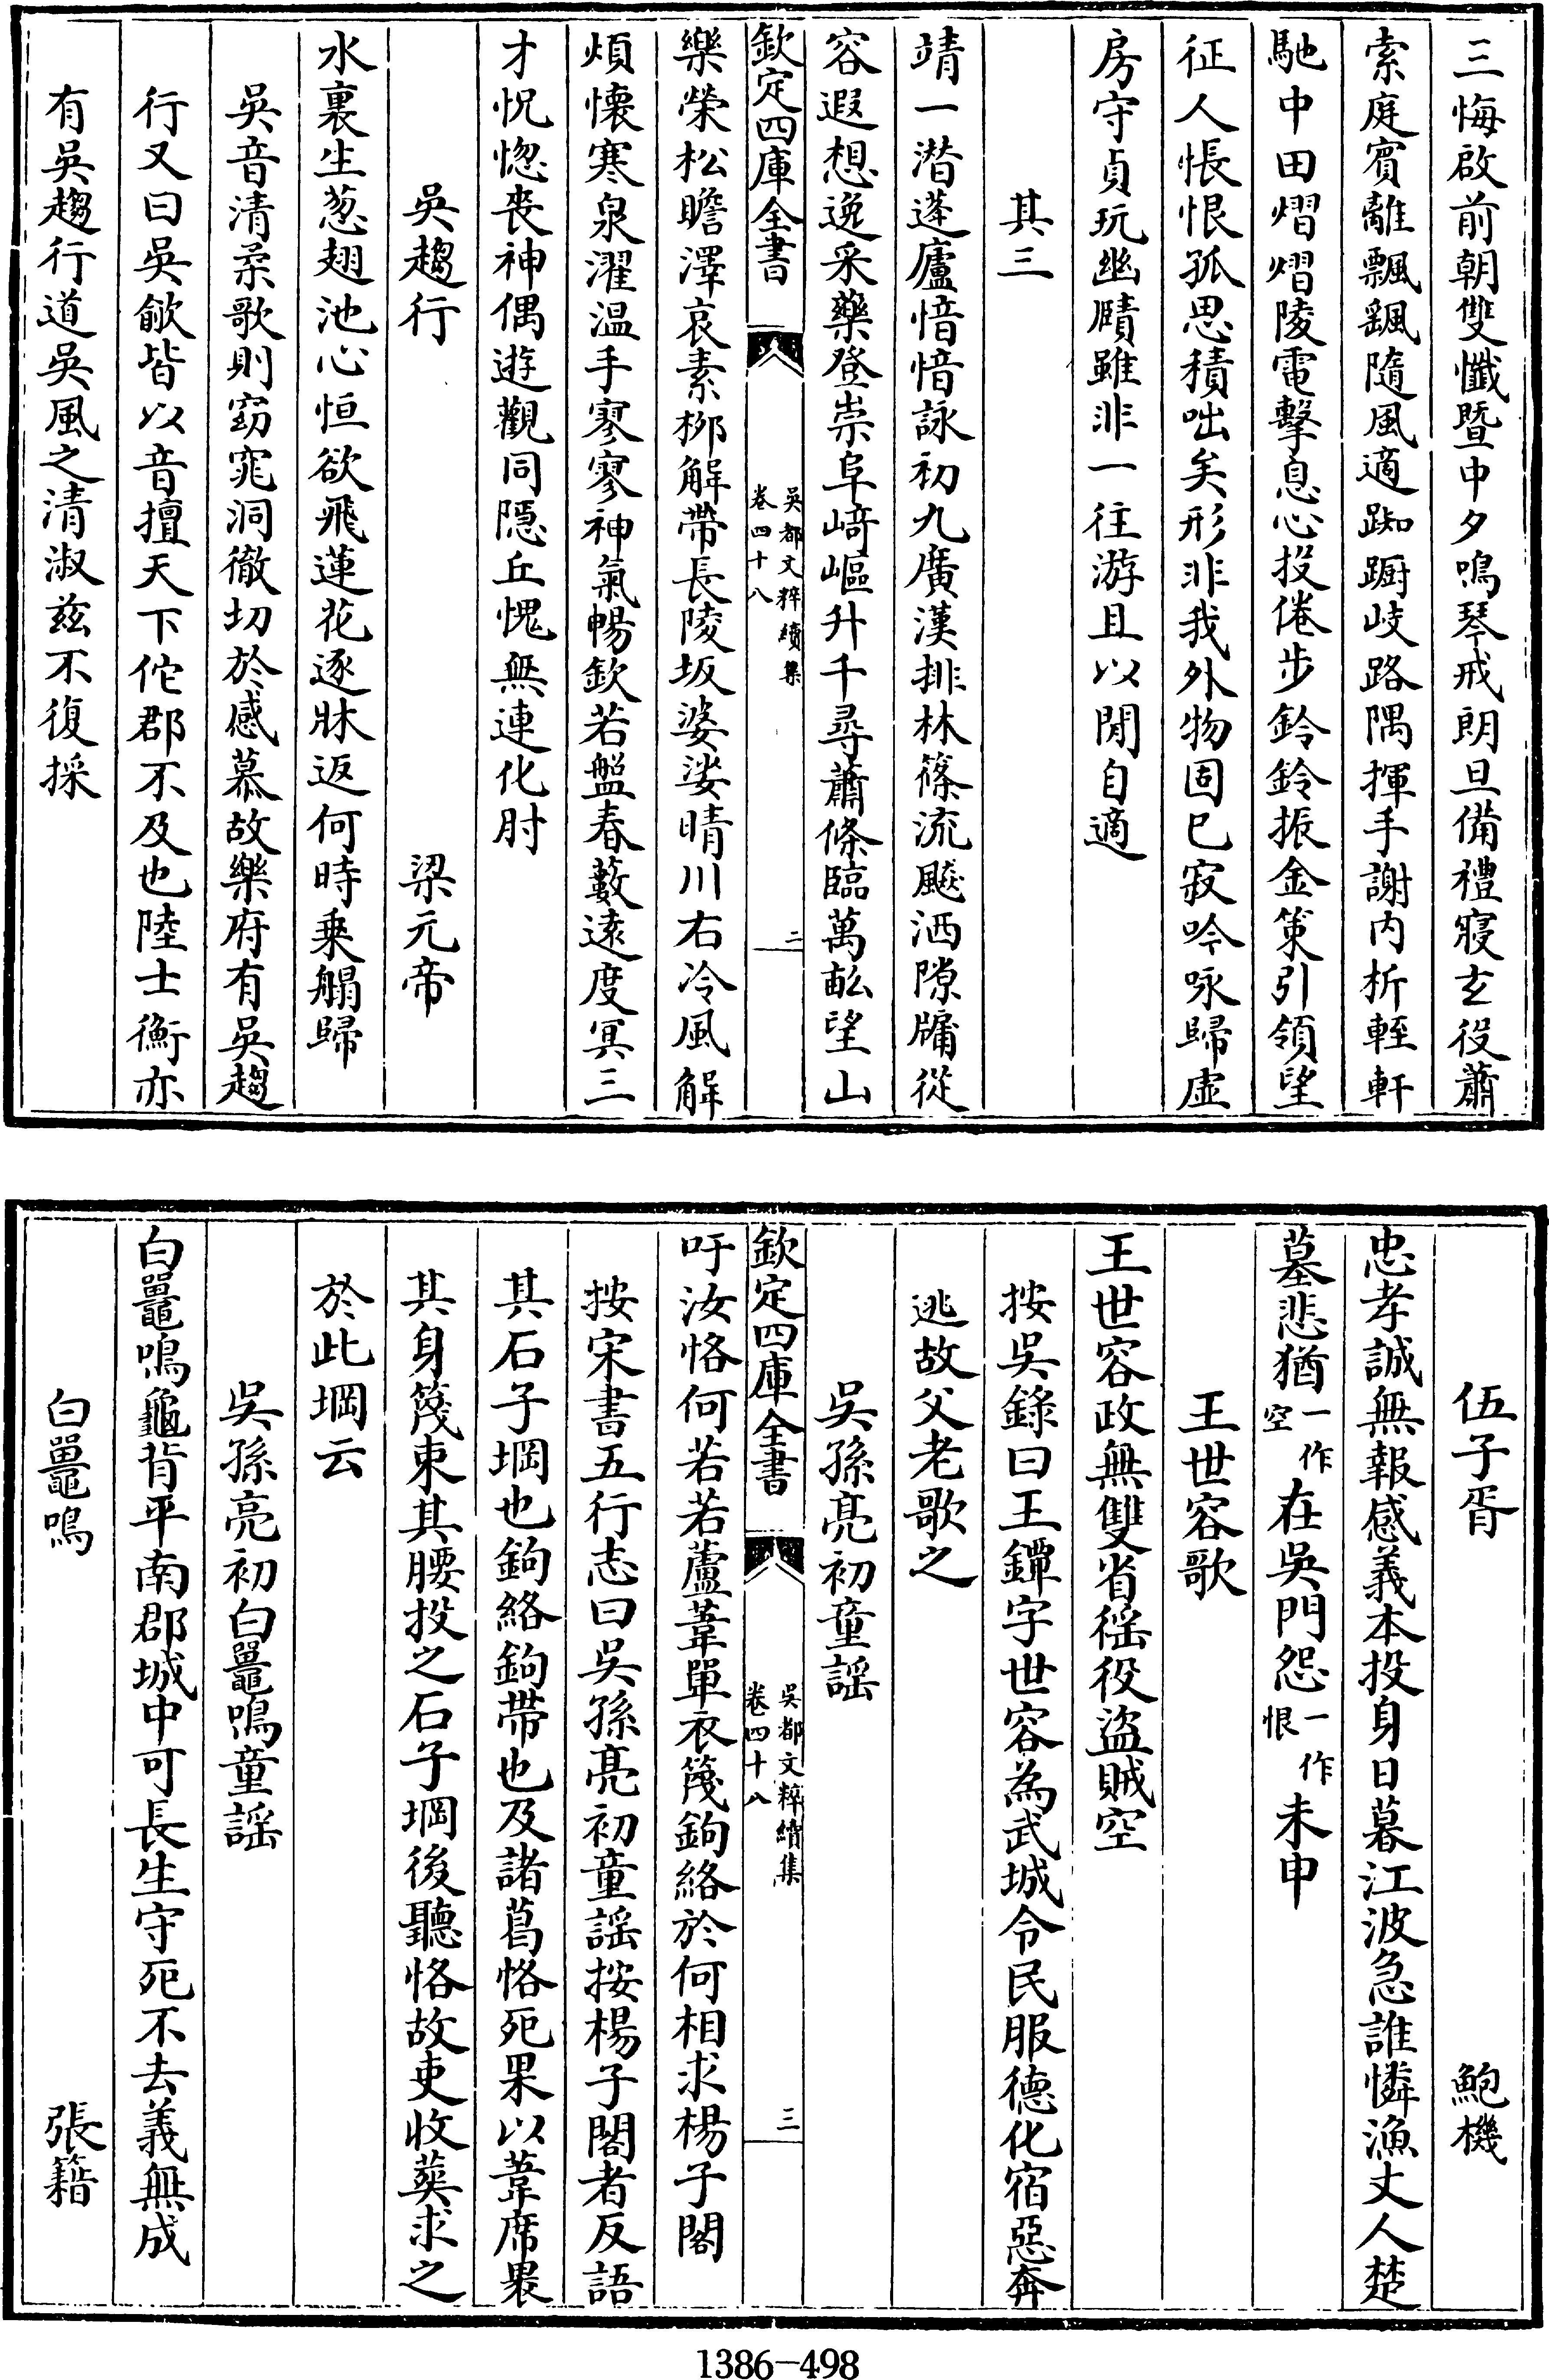 三悔啟前朝雙懺暨中夕鳴琴戒朗旦備禮寢玄役蕭
索庭賓離飄颻隨風適踟蹰岐路隅揮手謝内析輊軒
馳中田熠熠陵電擊息心投倦步鈴鈴振金策引領望
征人悵恨孤思積咄矣形非我外物固已寂吟咏歸虚
房守貞玩幽賾雖非一往游且以閒自適
其三
靖一潜蓬廬愔愔詠初九廣漢排林篠流飈洒隙牖從
容遐想逸采藥登崇阜﨑嶇升千尋蕭條臨萬畝望山
欽定四庫全書
吳都文粹續集
卷四十八
二
樂榮松瞻澤哀素栁解帶長陵坂婆娑晴川右冷風解
煩懐寒泉濯温手寥寥神氣暢欽若盤春藪逺度冥三
才怳惚喪神偶遊觀同隠丘愧無連化肘
吳趨行　梁元帝
水裏生葱翅池心恒欲飛蓮花逐牀返何時乗艒歸
吳音清柔歌則窈窕洞徹切於感慕故樂府有吳趨
行又曰吳歈皆以音擅天下佗郡不及也陸士衡亦
有吳趨行道吳風之清淑兹不復採
伍子胥　鮑機
忠孝誠無報感義本投身日暮江波急誰憐漁丈人楚
墓悲猶一作空在吳門怨一作恨未申
王世容歌
王世容政無雙省徭役盜賊空
按吳錄曰王鐔字世容為武城令民服德化宿惡奔
逃故父老歌之
吳孫亮初童謡
欽定四庫全書
吳都文粹續集
卷四十八
三
吁汝恪何若若蘆葦單衣篾鉤絡於何相求楊子閣
按宋書五行志曰吳孫亮初童謡按楊子閣者反語
其石子堈也鉤絡鉤帶也及諸葛恪死果以葦席裹
其身篾束其腰投之石子堈後聽恪故吏收葬求之
於此堈云
吳孫亮初白鼉鳴童謡
白鼉鳴龜背平南郡城中可長生守死不去義無成
白鼉鳴　張籍
1386-498